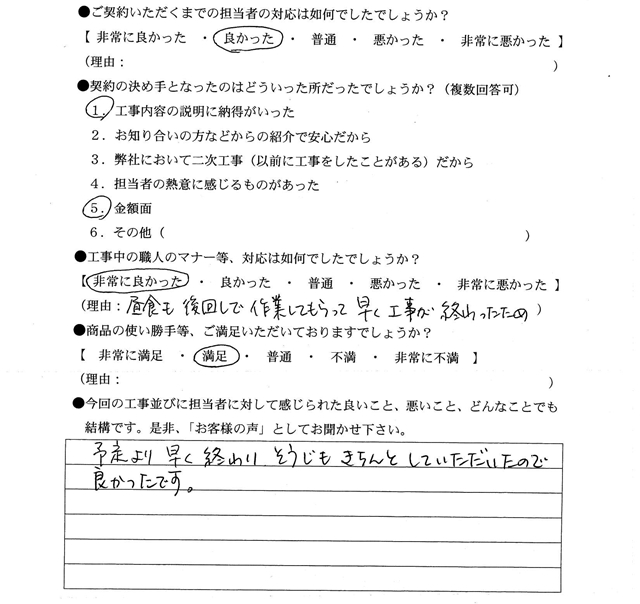 ●ご契約いただくまでの担当者の対応は如何でしたでしょうか？
【 非常に良かった ・ 良かった ・ 普通 ・ 悪かった ・ 非常に悪かった 】
（理由： ）
●契約の決め手となったのはどういった所だったでしょうか？（複数回答可）
１．工事内容の説明に納得がいった
２．お知り合いの方などからの紹介で安心だから
３．弊社において二次工事（以前に工事をしたことがある）だから
４．担当者の熱意に感じるものがあった
５．金額面
６．その他（ ）
●工事中の職人のマナー等、対応は如何でしたでしょうか？
【 非常に良かった ・ 良かった ・ 普通 ・ 悪かった ・ 非常に悪かった 】
（理由：昼食も後回しで作業してもらって早く工事が終わったため ）
●商品の使い勝手等、ご満足いただいておりますでしょうか？
【 非常に満足 ・ 満足 ・ 普通 ・ 不満 ・ 非常に不満 】
（理由： ）
●今回の工事並びに担当者に対して感じられた良いこと、悪いこと、どんなことでも
結構です。是非、「お客様の声」としてお聞かせ下さい。
予定より早く終わりそうじもきちんとしていただいたので
良かったです。